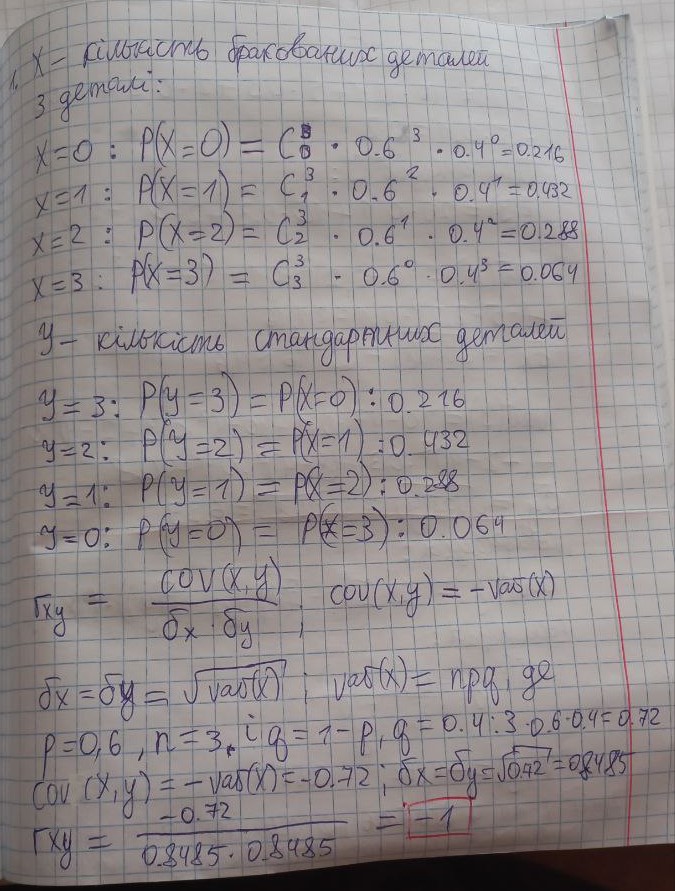 1. X – кількість бракованих деталей
3 деталі:
X=0 : P(X=0) = C₀³ · 0.6³ · 0.4⁰ = 0.216
X=1 : P(X=1) = C₁³ · 0.6² · 0.4¹ = 0.432
X=2 : P(X=2) = C₂³ · 0.6¹ · 0.4² = 0.288
X=3 : P(X=3) = C₃³ · 0.6⁰ · 0.4³ = 0.064
У – кількість стандартних деталей
У=3: P(У=3) = P(X=0) : 0.216
У=2: P(У=2) = P(X=1) : 0.432
У=1: P(У=1) = P(X=2) : 0.288
У=0: P(У=0) = P(X=3) : 0.064
rxy = cov(X,У) / (бx · бy) ; cov(X,У) = – var(X)
бx = бy = √var(X) ; var(X) = npq, де
p=0,6, n=3, і q=1–p, q=0.4 : 3·0.6·0.4=0.72
cov(X,У) = – var(X) = –0.72 ; бx=бy=√0.72=0.8485
rxy = –0.72 / (0.8485 · 0.8485) = –1